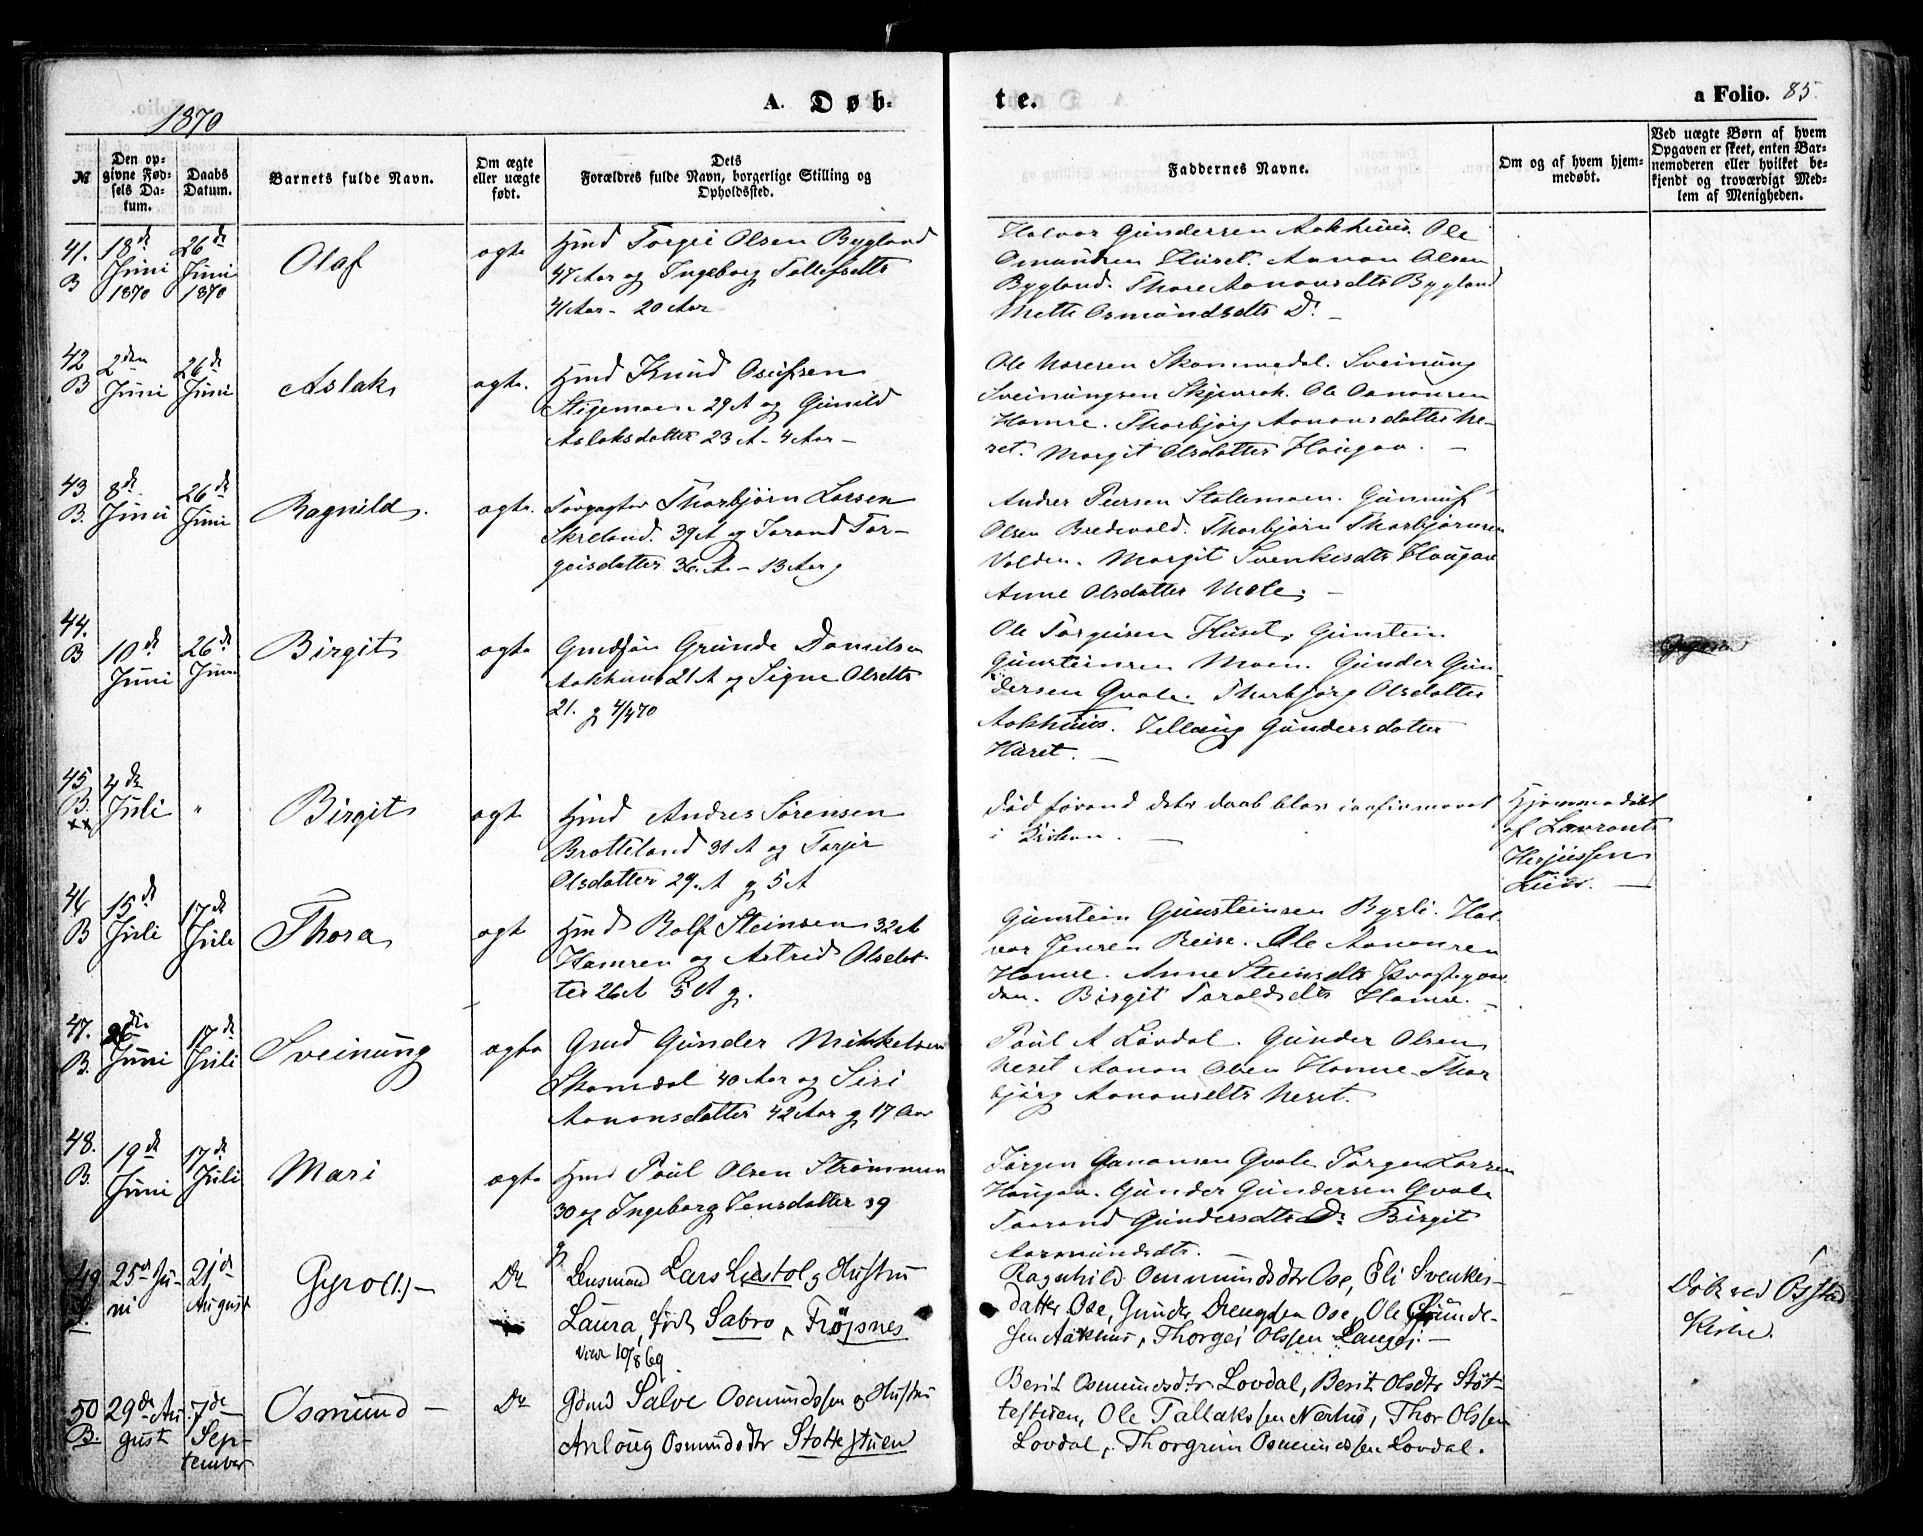 1870
A. Døb-
te.
a Folio. 85.
№
Den op-
givne Fød-
sels Da-
tum.
Daabs
Datum.
Barnets fulde Navn.
Om ægte
eller uægte
født.
Dets
Forældres fulde Navn, borgerlige Stilling og
Opholdssted.
Faddernes Navne.
Om og af hvem hjem-
medøbt.
Ved uægte Børn af hvem
Opgaven er skeet, enten Bar-
nemoderen eller hvilket be-
kjendt og troværdigt Med-
lem af Menigheden.
41. B
18de Juni 1870
26de Juni 1870
Olaf
ægte
Hmd Torgie Olsen Bygland
47 Aar og Ingeborg Tollefsdtr
41 Aar - 20 Aar
Halvor Gundersen Aakhuus. Ole
Omundsen Huset. Aanon Olsen
Bygland. Thore Aanonsdtr Bygland
Mette Osmundsdtr Do. -
42 B
2den Juni
26de Juni
Aslak
ægte.
Hmd Knud Osufsen
Stigemoen 29 A og Gunild
Aslaksdatter 23 A - 4 Aar -
Ole Skommedal. Sveinung
Sveinungsen. Ole Aanonsen
Homre. Thorbjørg Aanonsdatter Ne-
set. Margit Olsdatter Haugaa. -
43 B.
8de Juni
26de Juni
Ragnild.
ægte.
Thorbjørn Larsen
Skreland. 39 A og Jorand Tor-
geisdatter 36 A - 13 Aar g
Andres Peersen Stolemoen. Gunnuf
Olsen Bredvold. Thorbjørn Thorbjørnsen
Volden. Margit Svenkisdtr Haugaa
Anne Olsdatter Mole. -
44. B
10de Juni
26de Juni
Birgit
ægte
Gunde Danielsen
Aakhuus 21 A og Signe Olsdtr
21. g 4/4 70
Ole Torgeisen Huset, Gunstein
Gunsteinsen Moen. Gunder Gun-
dersen Qvale. Thorbjørg Olsdatter
Aakhuus. Gundersdatter
Huset. -
45, B. xx
4de Juli
"
Birgit
ægte
Hmd Andres Sørensen
Brotteland 31 A og Torjer
Olsdatter 29. A g 5 A
Død førend dets daab blev
i Kirken. -
Hjemmedøbt
af Lavrants
Herjussen
46 B
15de Juli
17de Juli
Thora
ægte
Hmd Rolf Steinsen 32 A
Homren og Astrid Olsdat-
ter 26 A 5 A g.
Gunstein Gunsteinsen Bygli. Hal-
vor Jensen Beise. Ole Aanonsen
Homre. Anne Steinsdtr Præstegaar-
den. Birgit Taraldsdtr Homre. -
47. B.
Juni
17de Juli
Sveinung
ægte
Gmd Gunder Mikkelsen
Skomedal 40 Aar og Siri
Aanonsdatter 42 Aar g 17 Aar
Paul A Løvdal. Gunder Olsen
Neset Aanon Olsen Homre. Thor
bjørg Aanonsdtr Neset.
48. B.
19de Juni
17de Juli
Mari
ægte
Hmd Paul Olsen Strømmen
30 og Ingeborg Jensdatter 39
Jørgen Qvale Jørgen Larsen
Haugaa. Gunder Gundersen Qvale
Gundersdtr Do Birgit
Aasmundsdtr. -
49
25de Ju-
ni
21de
August
Gyro (t.) -
Do
Lensmand Lars Liestøl, g Hustru
Laura, født Sabro, Frøysnes
viede 10/8 69.
Ragnhild Osmundsdtr Ose, Eli Svenkes-
datter Ose, Gunder Drengsen Ose, Ole Gunde-
sen Aakhus, Thorgei Olssen Langei. -
Døbt ved Østad
Kirke.
50 B.
29de Au-
gust
7de
Sep-
tember
Osmund -
Do
Gbmd Salve Osmundssen og Hustru
Anlaug Osmundsdtr Støttestuen
Berit Osmundsdtr Lovdal, Berit Olsdtr Støt-
testuen, Ole Tallakssen Neshus, Thor Olssen
Lovdal, Thorgrim Osmundssen Lovdal.